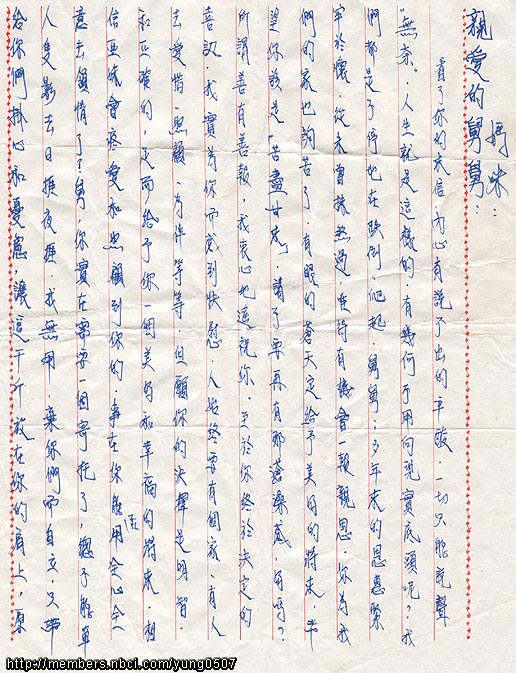 親愛的舅舅
妗咪：
看了你的來信,內心有說不出的辛酸.一切只能說聲
"無奈".人生就是這樣的.有幾何不用向現實底頭呢?.我
們都是不停地在跌倒爬起.舅舅:多年來的恩惠緊
牢於懷.從未曾抹煞過,待有機會一報親恩.你為我
們的家也夠苦了.有眼的蒼天定給予美好的將來.
望你該是"苦盡甘來".請不要再有那滄桑感.好嗎?
所謂善有善報,我衷心地這說你.至於你終於決定的
喜訊.我實為你而感到快慰.人始終要有個家.有人
去愛惜.照顧.等等.但願你的決擇是明智
和正確的,定而給予你一個美好和幸福的將來.相
信亞娥會疼愛和照顧到你的.事在你能用全心全
意去領情了?舅,你實在需要一個寄托了,總不能單
人隻影去日捱夜捱.我無用.棄你們而自立.又帶
給你們掛心和憂慮,讓這千斤放在你的肩上,原
http://members.nbci.com/yung0507